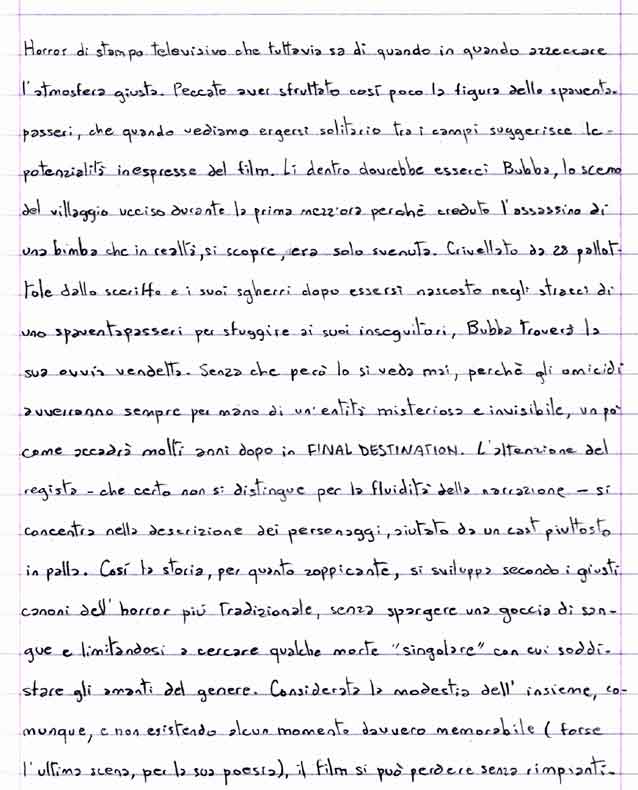 Horror di stampo televisivo che tuttavia sa di quando in quando azzeccare
l'atmosfera giusta. Peccato aver sfruttato così poco la figura dello spaventa-
passeri, che quando vediamo ergersi solitario tra i campi suggerisce le
potenzialità inespresse del film. Lì dentro dovrebbe esserci Bubba, lo scemo
del villaggio ucciso durante la prima mezz'ora perchè creduto l'assassino di
una bimba che in realtà, si scopre, era solo svenuta. Crivellato da 28 pallot-
tole dallo sceriffo e i suoi sgherri dopo essersi nascosto negli stracci di
uno spaventapasseri per sfuggire ai suoi inseguitori, Bubba troverà la
sua ovvia vendetta. Senza che però lo si veda mai, perchè gli omicidi
avverranno sempre per mano di un'entità misteriosa e invisibile, un po'
come accadrà molti anni dopo in FINAL DESTINATION. L'attenzione del
regista - che certo non si distingue per la fluidità della narrazione - si
concentra nella descrizione dei personaggi, aiutato da un cast piuttosto
in palla. Così la storia, per quanto zoppicante, si sviluppa secondo i giusti
canoni dell'horror più tradizionale, senza spargere una goccia di san-
gue e limitandosi a cercare qualche morte "singolare" con cui soddi-
sfare gli amanti del genere. Considerata la modestia dell'insieme, co-
munque, e non esistendo alcun momento davvero memorabile (forse
l'ultima scena, per la sua poesia), il film si può perdere senza rimpianti.